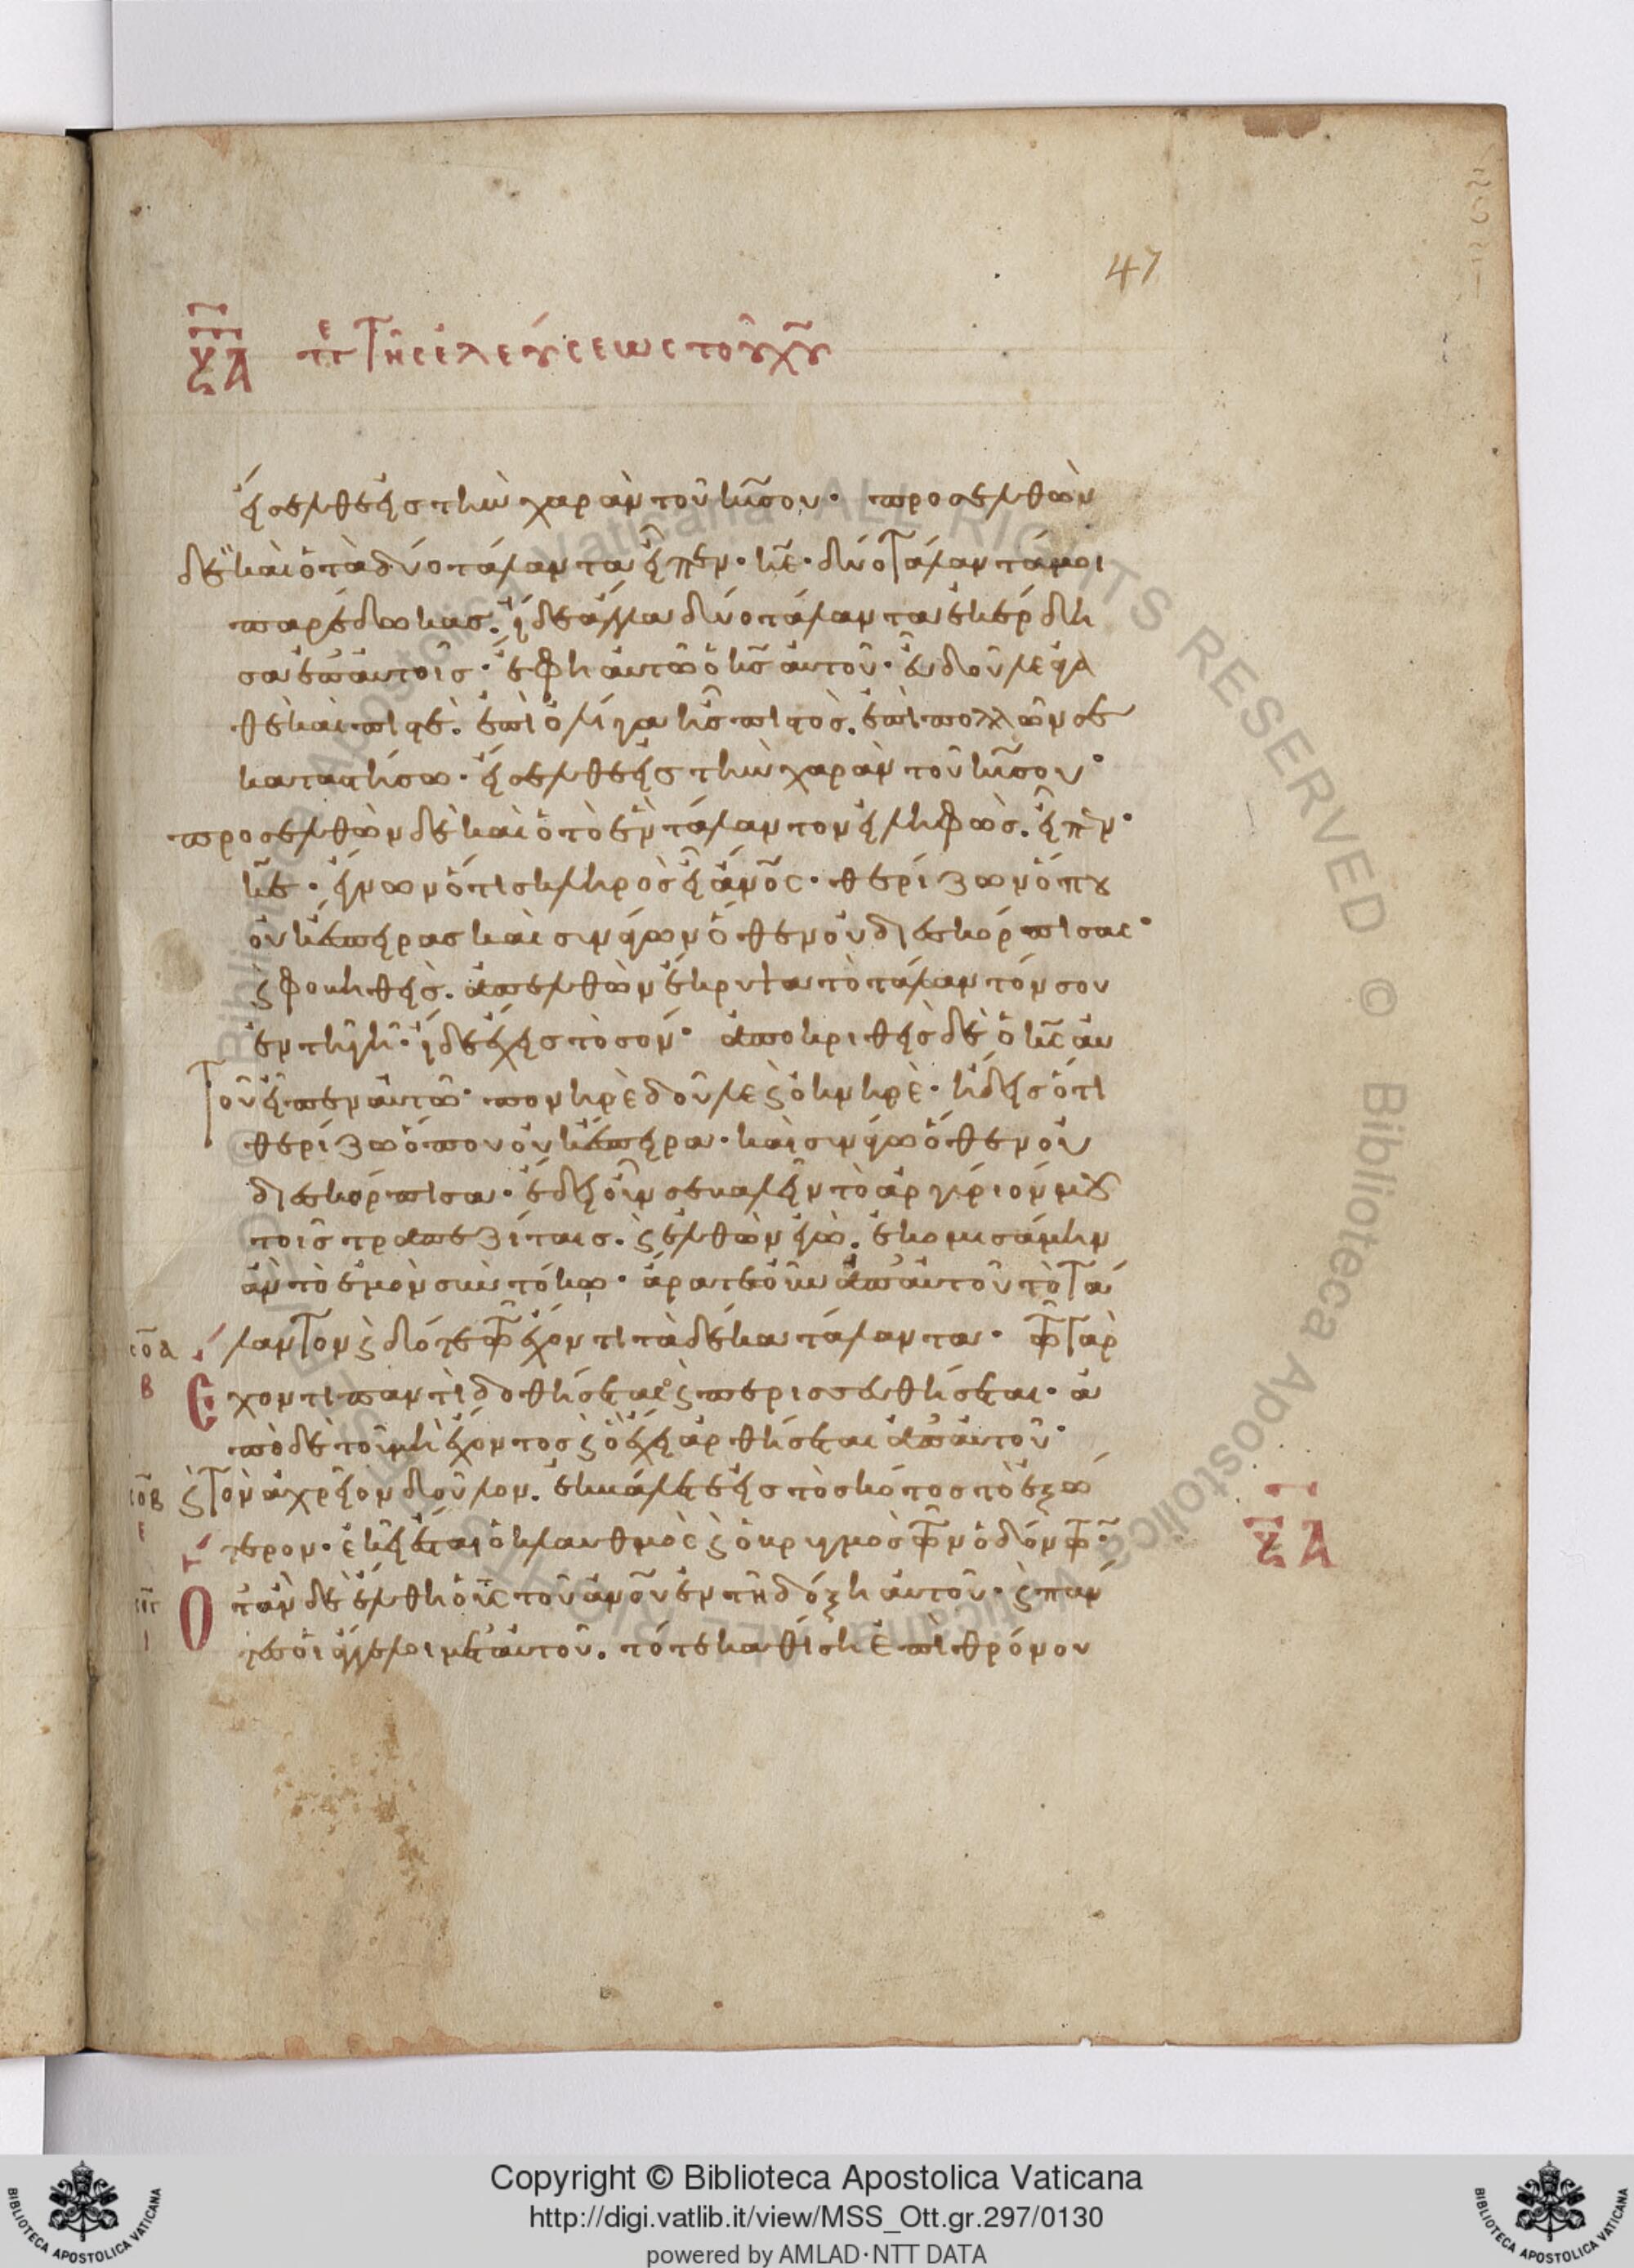 47
ξα πε τῆς ἐλεύσεως τοῦ χυ
εἴσελθε εἰς τὴν χαρὰν τοῦ κυ σου· προσελθὼν
δὲ καὶ ὁ τὰ δύο τάλαντα εἶπεν· κε· δύο τάλαντά μοι
παρέδωκας. ἴδε ἄλλα δύο τάλαντα ἐκέρδη
σα ἐπ' αὐτοῖς· ἔφη αὐτῶ ὁ κς αὐτοῦ· εὖ δοῦλε ἀγα
θὲ καὶ πιστέ. ἐπὶ ὀλίγα ἦς πιστὸς. ἐπὶ πολλῶν σε
καταστήσω· εἴσελθε εἰς τὴν χαρὰν τοῦ κυ σου·
προσελθὼν δὲ καὶ ὁ τὸ ἓν τάλαντον εἰληφὼς. εἶπεν·
κε· ἔγνων ὅτι σκληρὸς εἶ ανος· θερίζων ὅπου
οὐκ ἔσπειρας καὶ συνάγων ὅθεν οὐ διεσκόρπισας·
ϛ φοβηθεὶς. ἀπελθὼν ἔκρυψα τὸ τάλαντόν σου
ἐν τῆ γῆ· ἴδε ἔχεις τὸ σόν· ἀποκριθεὶς δὲ ὁ κς αὐ
τοῦ εἶπεν αὐτῶ· πονηρὲ δοῦλε ϛ ὀκνηρὲ· ἤδεις ὅτι
θερίζω ὅπου οὐκ ἔσπειρα· καὶ συνάγω ὅθεν οὐ
διεσκόρπισα· ἔδει οὖν σε βαλεῖν τὸ ἀργύριόν μου
τοῖς τραπεζίταις. ϛ ἐλθὼν ἐγὼ. ἐκομισάμην
ἂν τὸ ἐμὸν σὺν τόκω· ἄρατε οὖν ἀπ' αὐτοῦ τὸ τά
λαντον ϛ δότε τῶ ἔχοντι τὰ δέκα τάλαντα· τῶ γὰρ
ἔχοντι παντὶ δοθήσεται ϛ περισσευθήσεται· ἀ
πὸ δὲ τοῦ μὴ ἔχοντος ϛ ὃ ἔχει ἀρθήσεται ἀπ' αὐτοῦ·
ϛ τὸν ἀχρεῖον δοῦλον. ἐκβάλετε εἰς τὸ σκότος τὸ ἐξώ
τερον· ἐκεῖ ἔσται ὁ κλαυθμὸς ϛ ὁ βρυγμὸς τῶν ὀδόντων·
ὅταν δὲ ἔλθη ὁ υς τοῦ ανου ἐν τῆ δόξη αὐτοῦ· ϛ πάν
τες οἱ ἄγγελοι μετ' αὐτοῦ. τότε καθίση ἐπὶ θρόνου
ξα
Copyright © Biblioteca Apostolica Vaticana
http://digi.vatlib.it/view/MSS_Ott.gr.297/0130
powered by AMLAD·NTT DATA